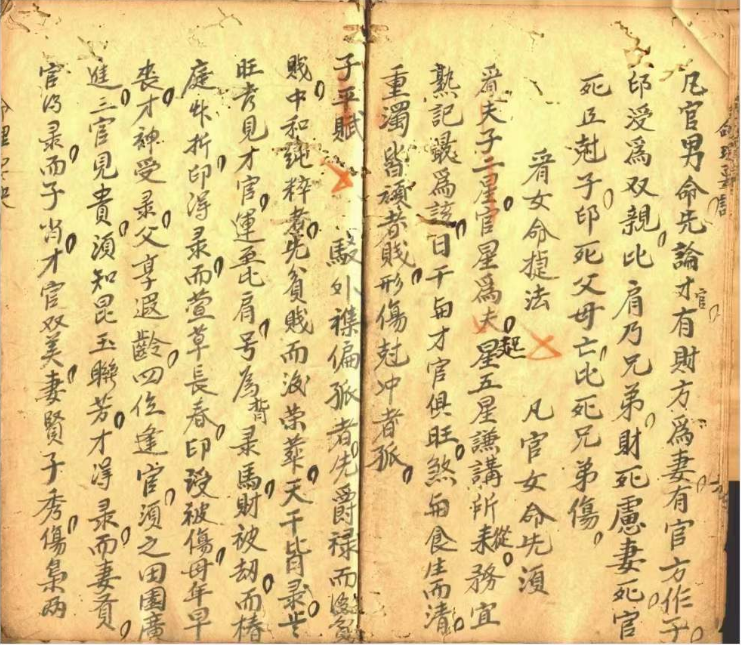 凡官男命先論才官有財方為妻有官方作子
印受為双親比肩乃兄弟財死慮妻死官
死丘尅子印死父母亡比死兄弟傷
看女命捷法 凡官女命先須
看夫子二星官星為夫星五星謙講所耒從務宜
熟記最為該日干与才官俱旺煞与食生而清
重濁皆頑者賤形傷尅冲者孤
子平賦 駁外襍偏孤者先爵禄而後貧
賤中和純粹者先貧賤而後荣華天干皆录堂
旺者見才官運至比肩号為背录馬財被劫而椿
庭必折印得录而萱草長春印授被傷母年早
丧才神受录父享遐齡四位逢官須之田園廣
進三官見貴須知昆玉聨芳才得录而妻賢
官得录而子尚才官双美妻賢子秀傷梟两